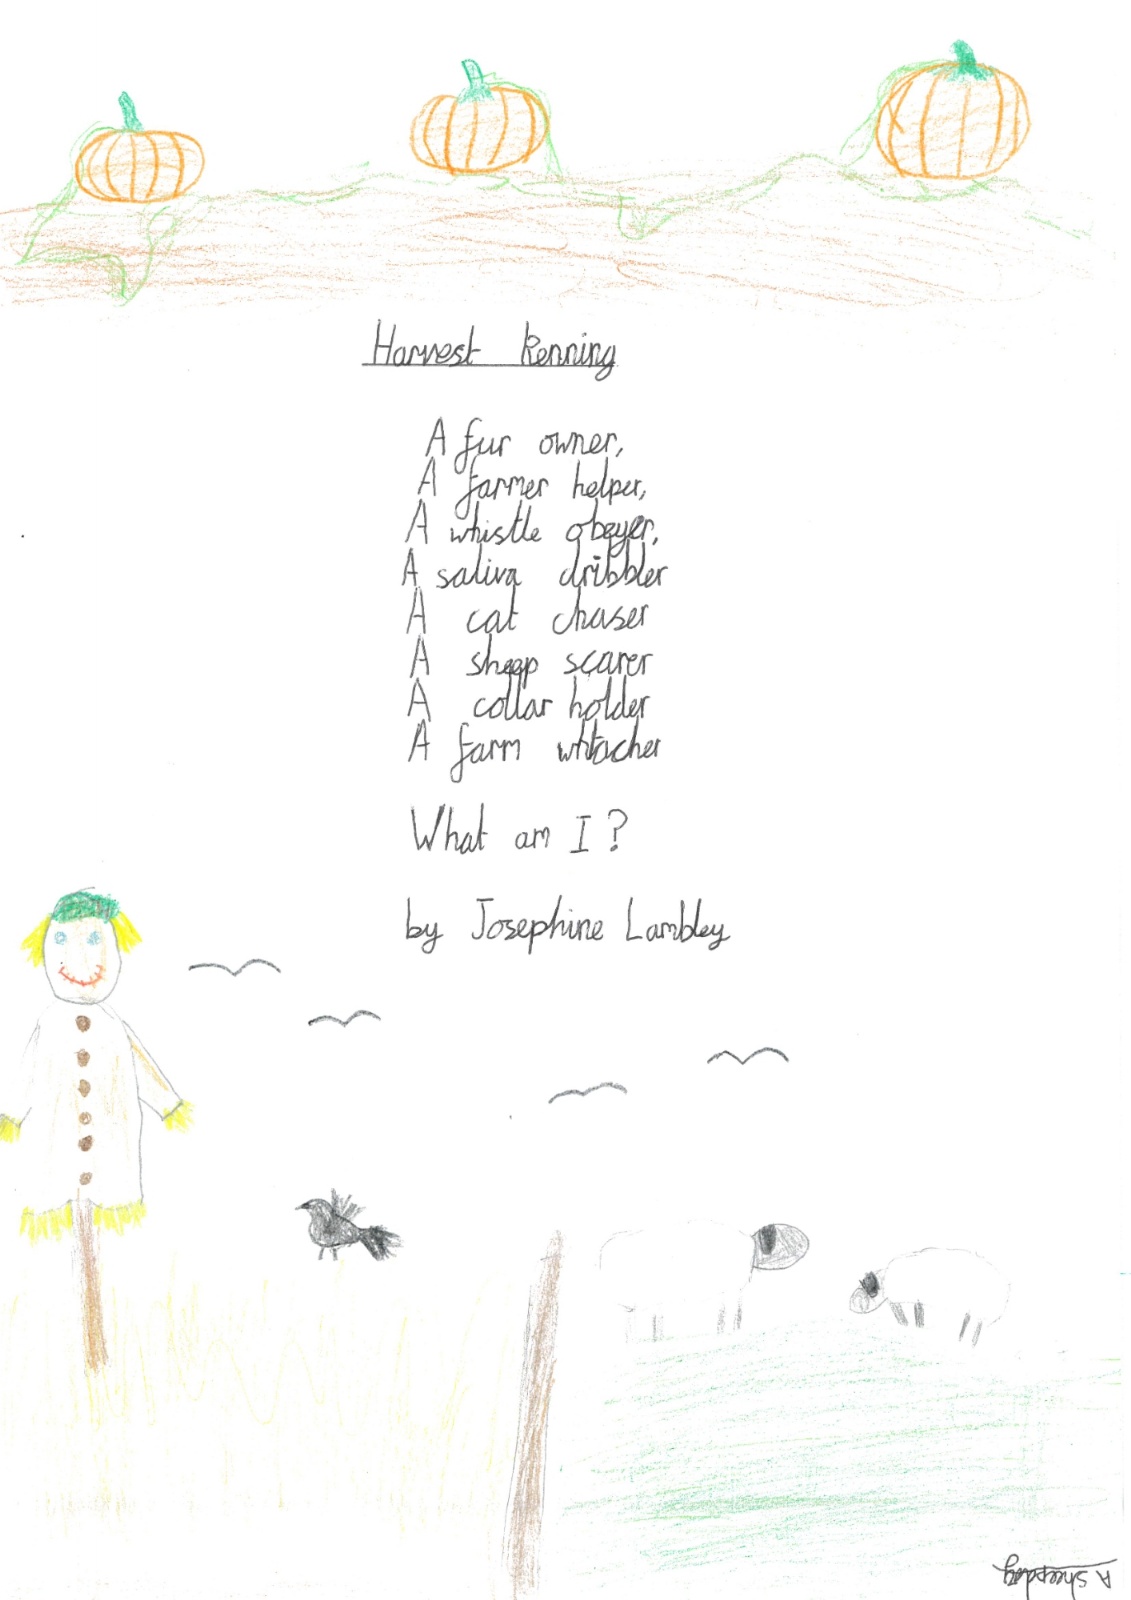 Harvest Kenning
A fur owner,
A farmer helper,
A whistle obeyer,
A saliva dribbler
A cat chaser
A sheep scarer
A collar holder
A farm whtacher
What am I?
by Josephine Lambley
A sheepdog